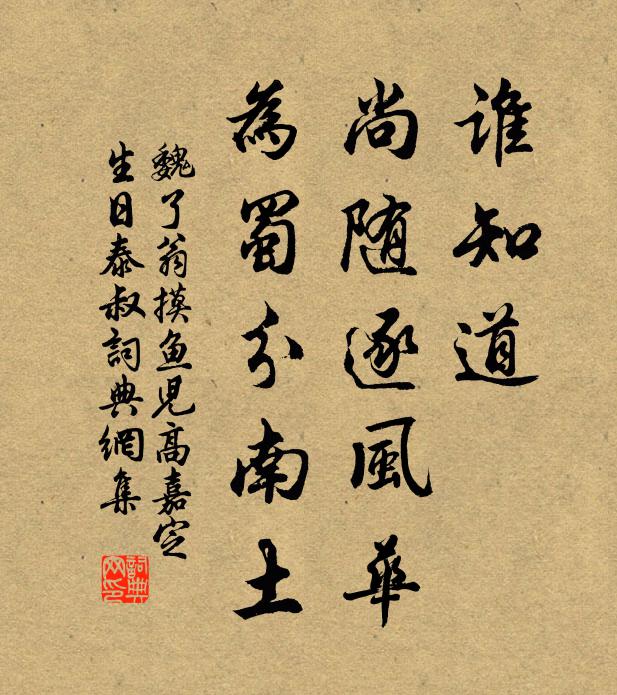 誰知道
尚随逐風華
為蜀分南土
魏了翁摸鱼児高嘉定
生日泰叔詞典網集
詞典网印